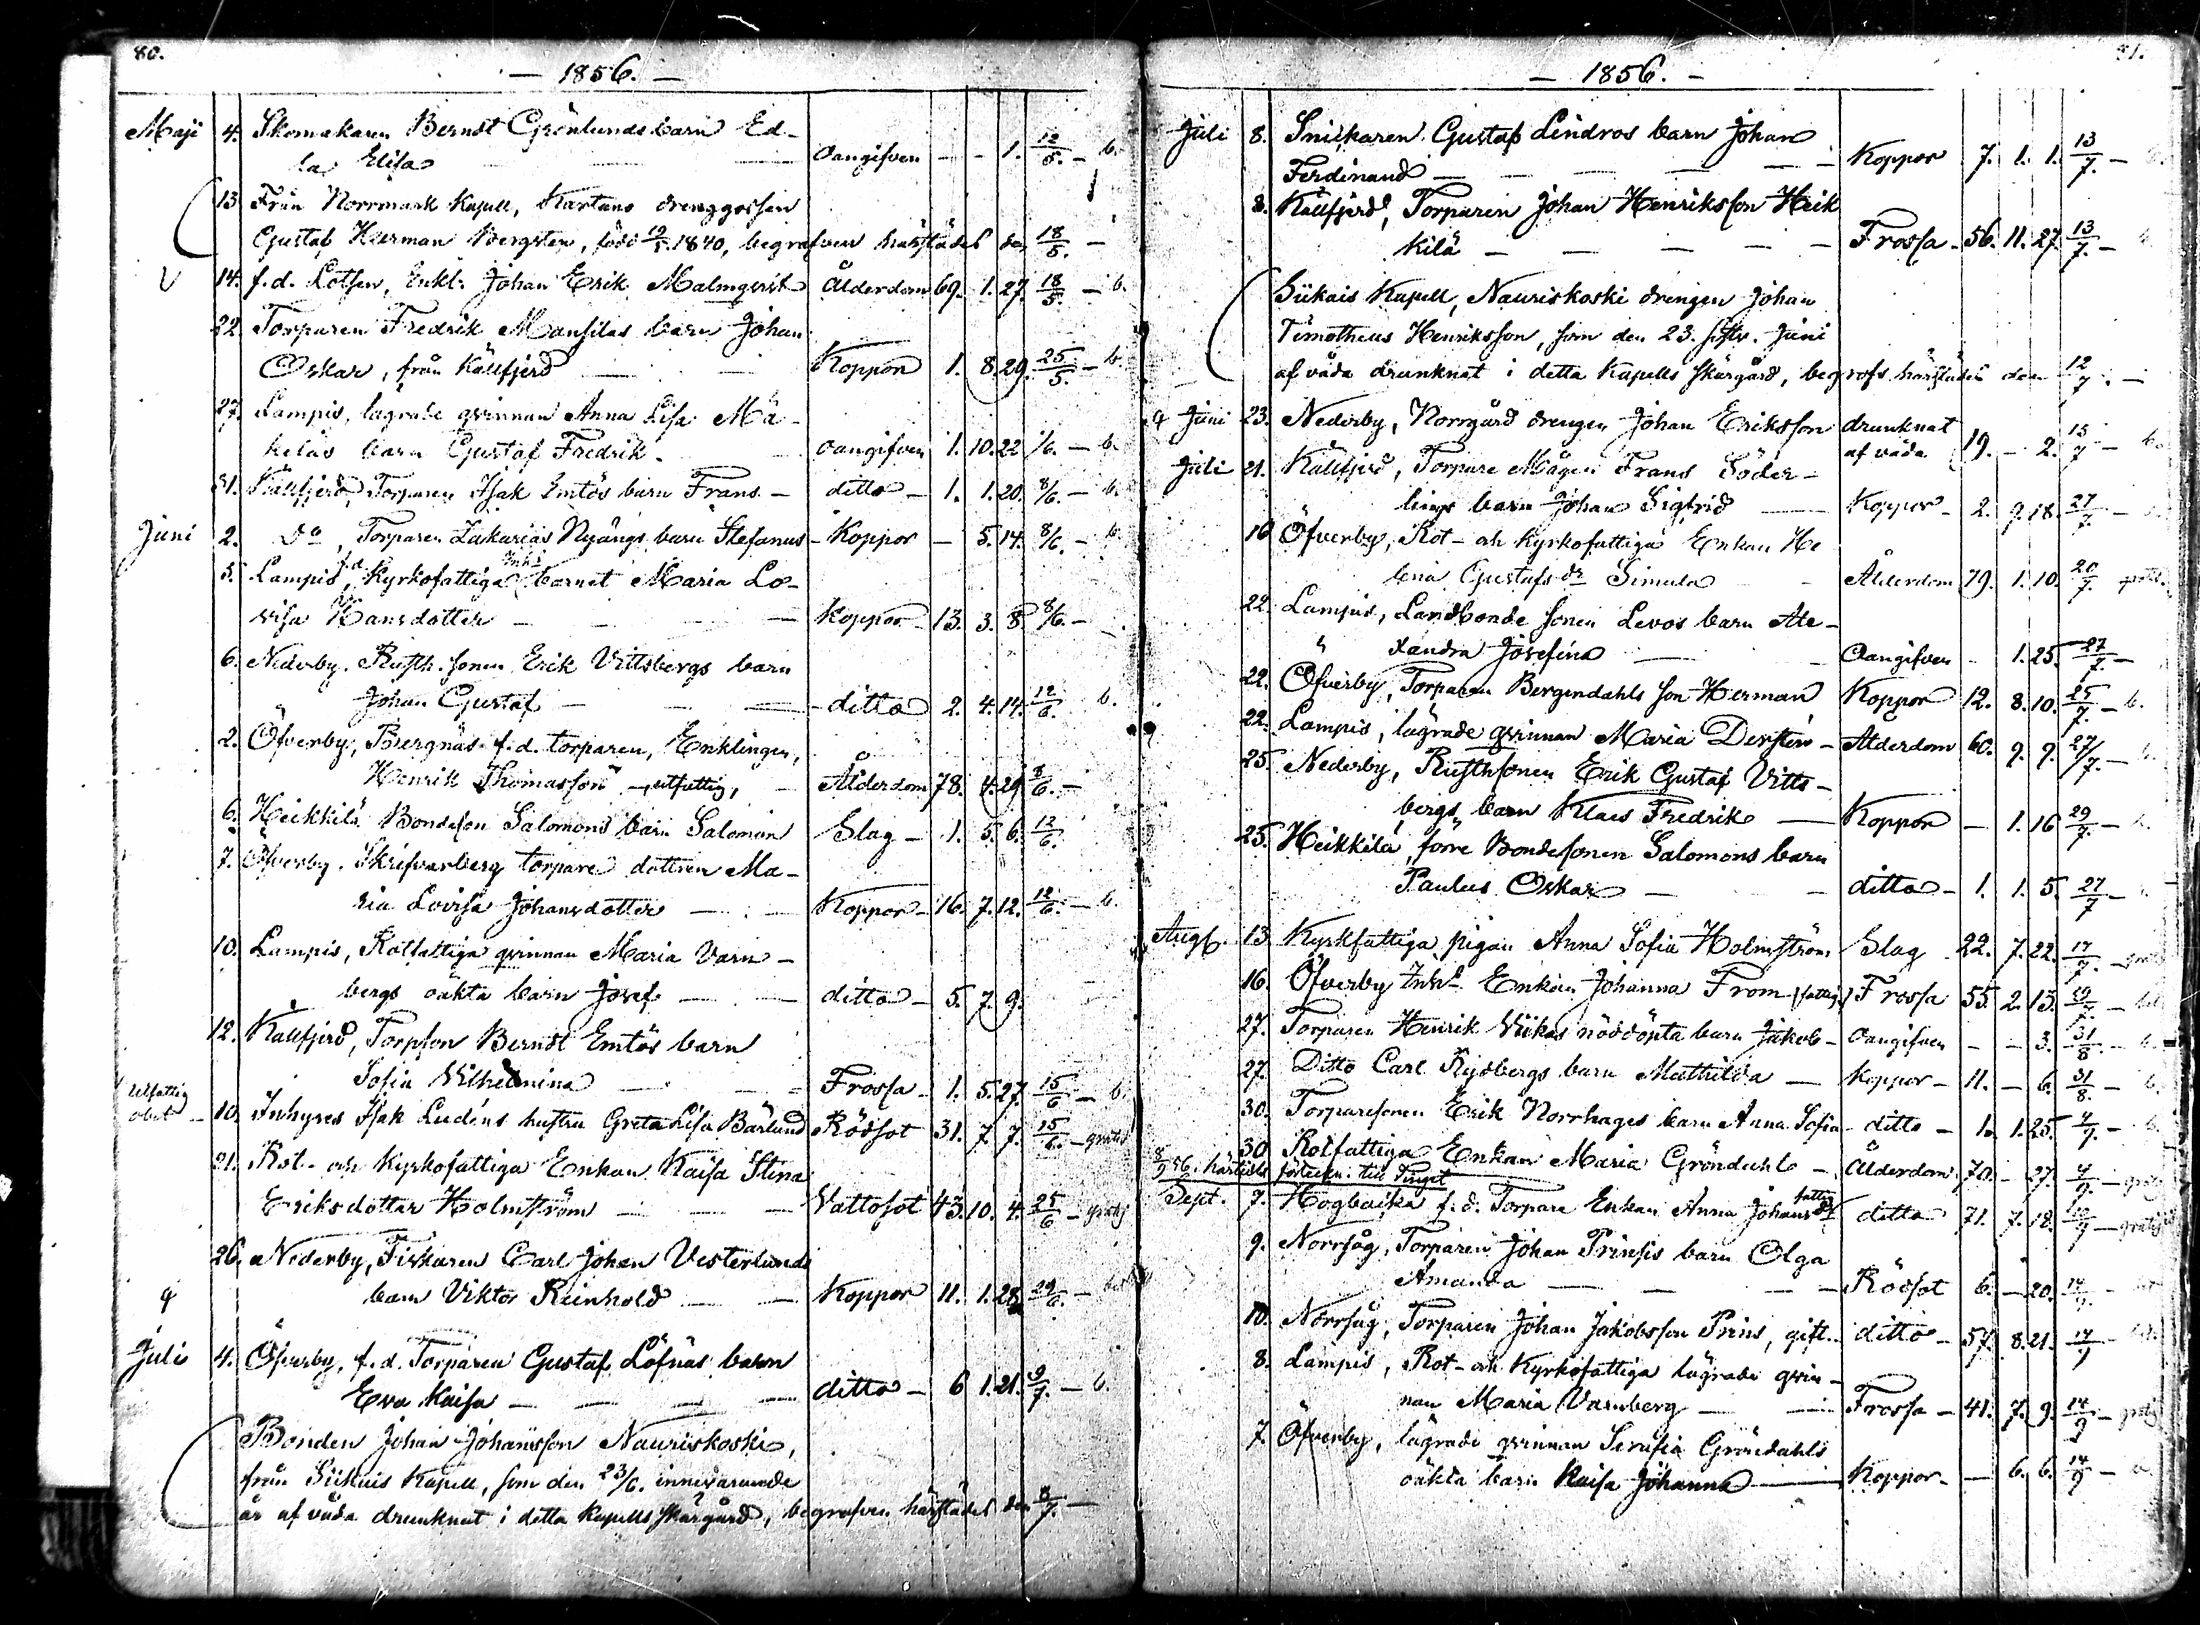 80.
— 1856. —
Maji 4. Skomakaren Berndt Grönlunds barn Ed-
la Elisa — — oangifven — - 1. 12/5. — b.
13 Från Norrmark Kapell, Kartano drenggossen
Gustaf Herman Bergsten, född 1840, begrafven härstädes den 18/5. —
V 14. f.d. Lotsen, Enkl. Johan Erik Malmqvist Ålderdom 69. 1. 27. 18/5 — b.
22. Torparen Fredrik Mansilas barn Johan
Oskar, från Källfjerd — Koppor 1. 8. 29. 25/5. — b.
27. Lampis, lägrade qvinnan Anna Lisa Mä-
keläs barn Gustaf Fredrik. oangifven 1. 10. 22 1/6. — b.
31. Källfjerd, Torparen Isak Emtös barn Frans — ditto — 1. 1. 20. 8/6. — b.
Juni 2. Do, Torparen Zakarias Nyängs barn Stefanus — Koppor — 5. 14. 8/6. — b.
5. Lampis, f.d. Kyrkofattiga Inhs barnet Maria Lo-
visa Hansdotter — — Koppor 13. 3. 8 8/6. —
6. Nederby. Rusth. sonen Erik Vittsbergs barn
Johan Gustaf — — ditto 2. 4. 14. 12/6. b.
2. Öfverby, Bergnäs f.d. torparen, Enklingen,
Henrik Thomasson — utfattig, — Ålderdom 78. 4. 29 8/6. —
6. Heikkilä Bondeson Salomons barn Salomon Slag — 1. 5. 6. 12/6.
7. Öfverby. Skrifvarberg torpare dottren Ma-
ria Lovisa Johansdotter — — Koppor — 16. 7. 12. 12/6. — b.
10. Lampis, Rotfattiga qvinnan Maria Varn-
bergs oäkta barn Josef — — ditto — 5. 7. 9.
12. Källfjerd, Torpson Berndt Emtös barn
Sofia Vilhelmina — — Frossa — 1. 5. 27. 15/6 — b.
Utfattig
obet — 10. Inhyses Isak Ludéns hustru Greta Lisa Bärlund Rödsot 31. 7. 7. 15/6. — gratis
21. Rot- och Kyrkofattiga Enkan Kaisa Stina
Eriksdotter Holmström — Vattosot 43. 10. 4. 25/6 — gratis
26. Nederby, Fiskaren Carl Johan Vesterlunds
barn Viktor Reinhold — — Koppor 11. 1. 28. 29/6. —
Juli 4. Öfverby, f.d. Torparen Gustaf Löfnäs barn
Eva Kaisa — — — ditto — 6 1. 21. 9/7 — b.
Bonden Johan Johansson Nauriskoski,
från Siikais Kapell, som den 23/6. innevarande
år af våda drunknat i detta Kapells skärgård, begrafven härstädes den 8/7. —
81.
— 1856. —
Juli 8. Snickaren Gustaf Lindros barn Johan
Ferdinand — — — Koppor 7. 1. 1. 13/7. —
8. Källfjerd, Torparen Johan Henriksson Heik
kilä — — — — Frossa — 56. 11. 27. 13/7. —
Siikais Kapell, Nauriskoski drengen Johan
Timotheus Henriksson, som den 23. sistl. Juni
af våda drunknat i detta Kapells skärgård, begrofs härstädes den 12/7. —
Juni 23. Nederby, Norrgård drengen Johan Eriksson drunknat
af våda 19. — 2. 13/7 — b.
Juli 21. Källfjerd, Torpare Mågen Frans Söder-
lings barn Johan Sigfrid — Koppor — 2. 9. 18. 27/7. —
16 Öfverby, Rot- och Kyrkofattiga Enkan He
lena Gustafsdr Simula — Ålderdom 79. 1. 10. 20/7.
22. Lampis, Landbonde sonen Levos barn Ale-
xandra Josefina — — Oangifven - 1. 25. 27/7. —
22. Öfverby, Torparen Bergendahls son Herman Koppor 12. 8. 10. 25/7. — b.
22. Lampis, lägrade qvinnan Maria Dersten — Ålderdom 60. 9. 9. 27/7. —
25. Nederby, Rusthsonen Erik Gustaf Vitts-
bergs barn Klaes Fredrik — Koppor — 1. 16 29/7. —
25. Heikkilä, förre Bondesonen Salomons barn
Paulus Oskar — — ditto — 1. 1. 5. 27/7 —
Aug. 13. Kyrkfattiga pigan Anna Sofia Holmström Slag 22. 7. 22. 17/7. — gratis
16. Öfverby Inhs Enkan Johanna From (fattig) Frossa 55. 2. 13.
27. Torparen Henrik Viikas nöddöpta barn Jakob — Oangifven - - 3. 31/8. —
27. Ditto Carl Rydbergs barn Mathilda — Koppor — 11. — 6. 31/8. —
30. Torparesonen Erik Norrhages barn Anna Sofia — ditto — 1. 1. 25. 7/9. —
30 Rotfattiga Enkan Maria Gröndahl — Ålderdom 70. — 27. 7/9. — gratis
8/9 56. härtills förteckn. till Tinget
Sept. 7. Hogbacka f.d. Torpare Enkan Anna Johansdr fattig ditto 71. 7. 18. — gratis
9. Norrsåg, Torparen Johan Prinsis barn Olga
Amanda — — Rödsot 6. — 20. 14/9.
10. Norrsåg, Torparen Johan Jakobsson Prins, gift. ditto — 57. 8. 21. 14/9
8. Lampis, Rot- och Kyrkofattiga lägrade qvin-
nan Maria Varnberg — — Frossa — 41. 7. 9. 14/9 — gratis
7. Öfverby, lägrade qvinnan Serafia Gröndahls
oäkta barn Kaisa Johanna — Koppor — — 6. 6. 14/9 —